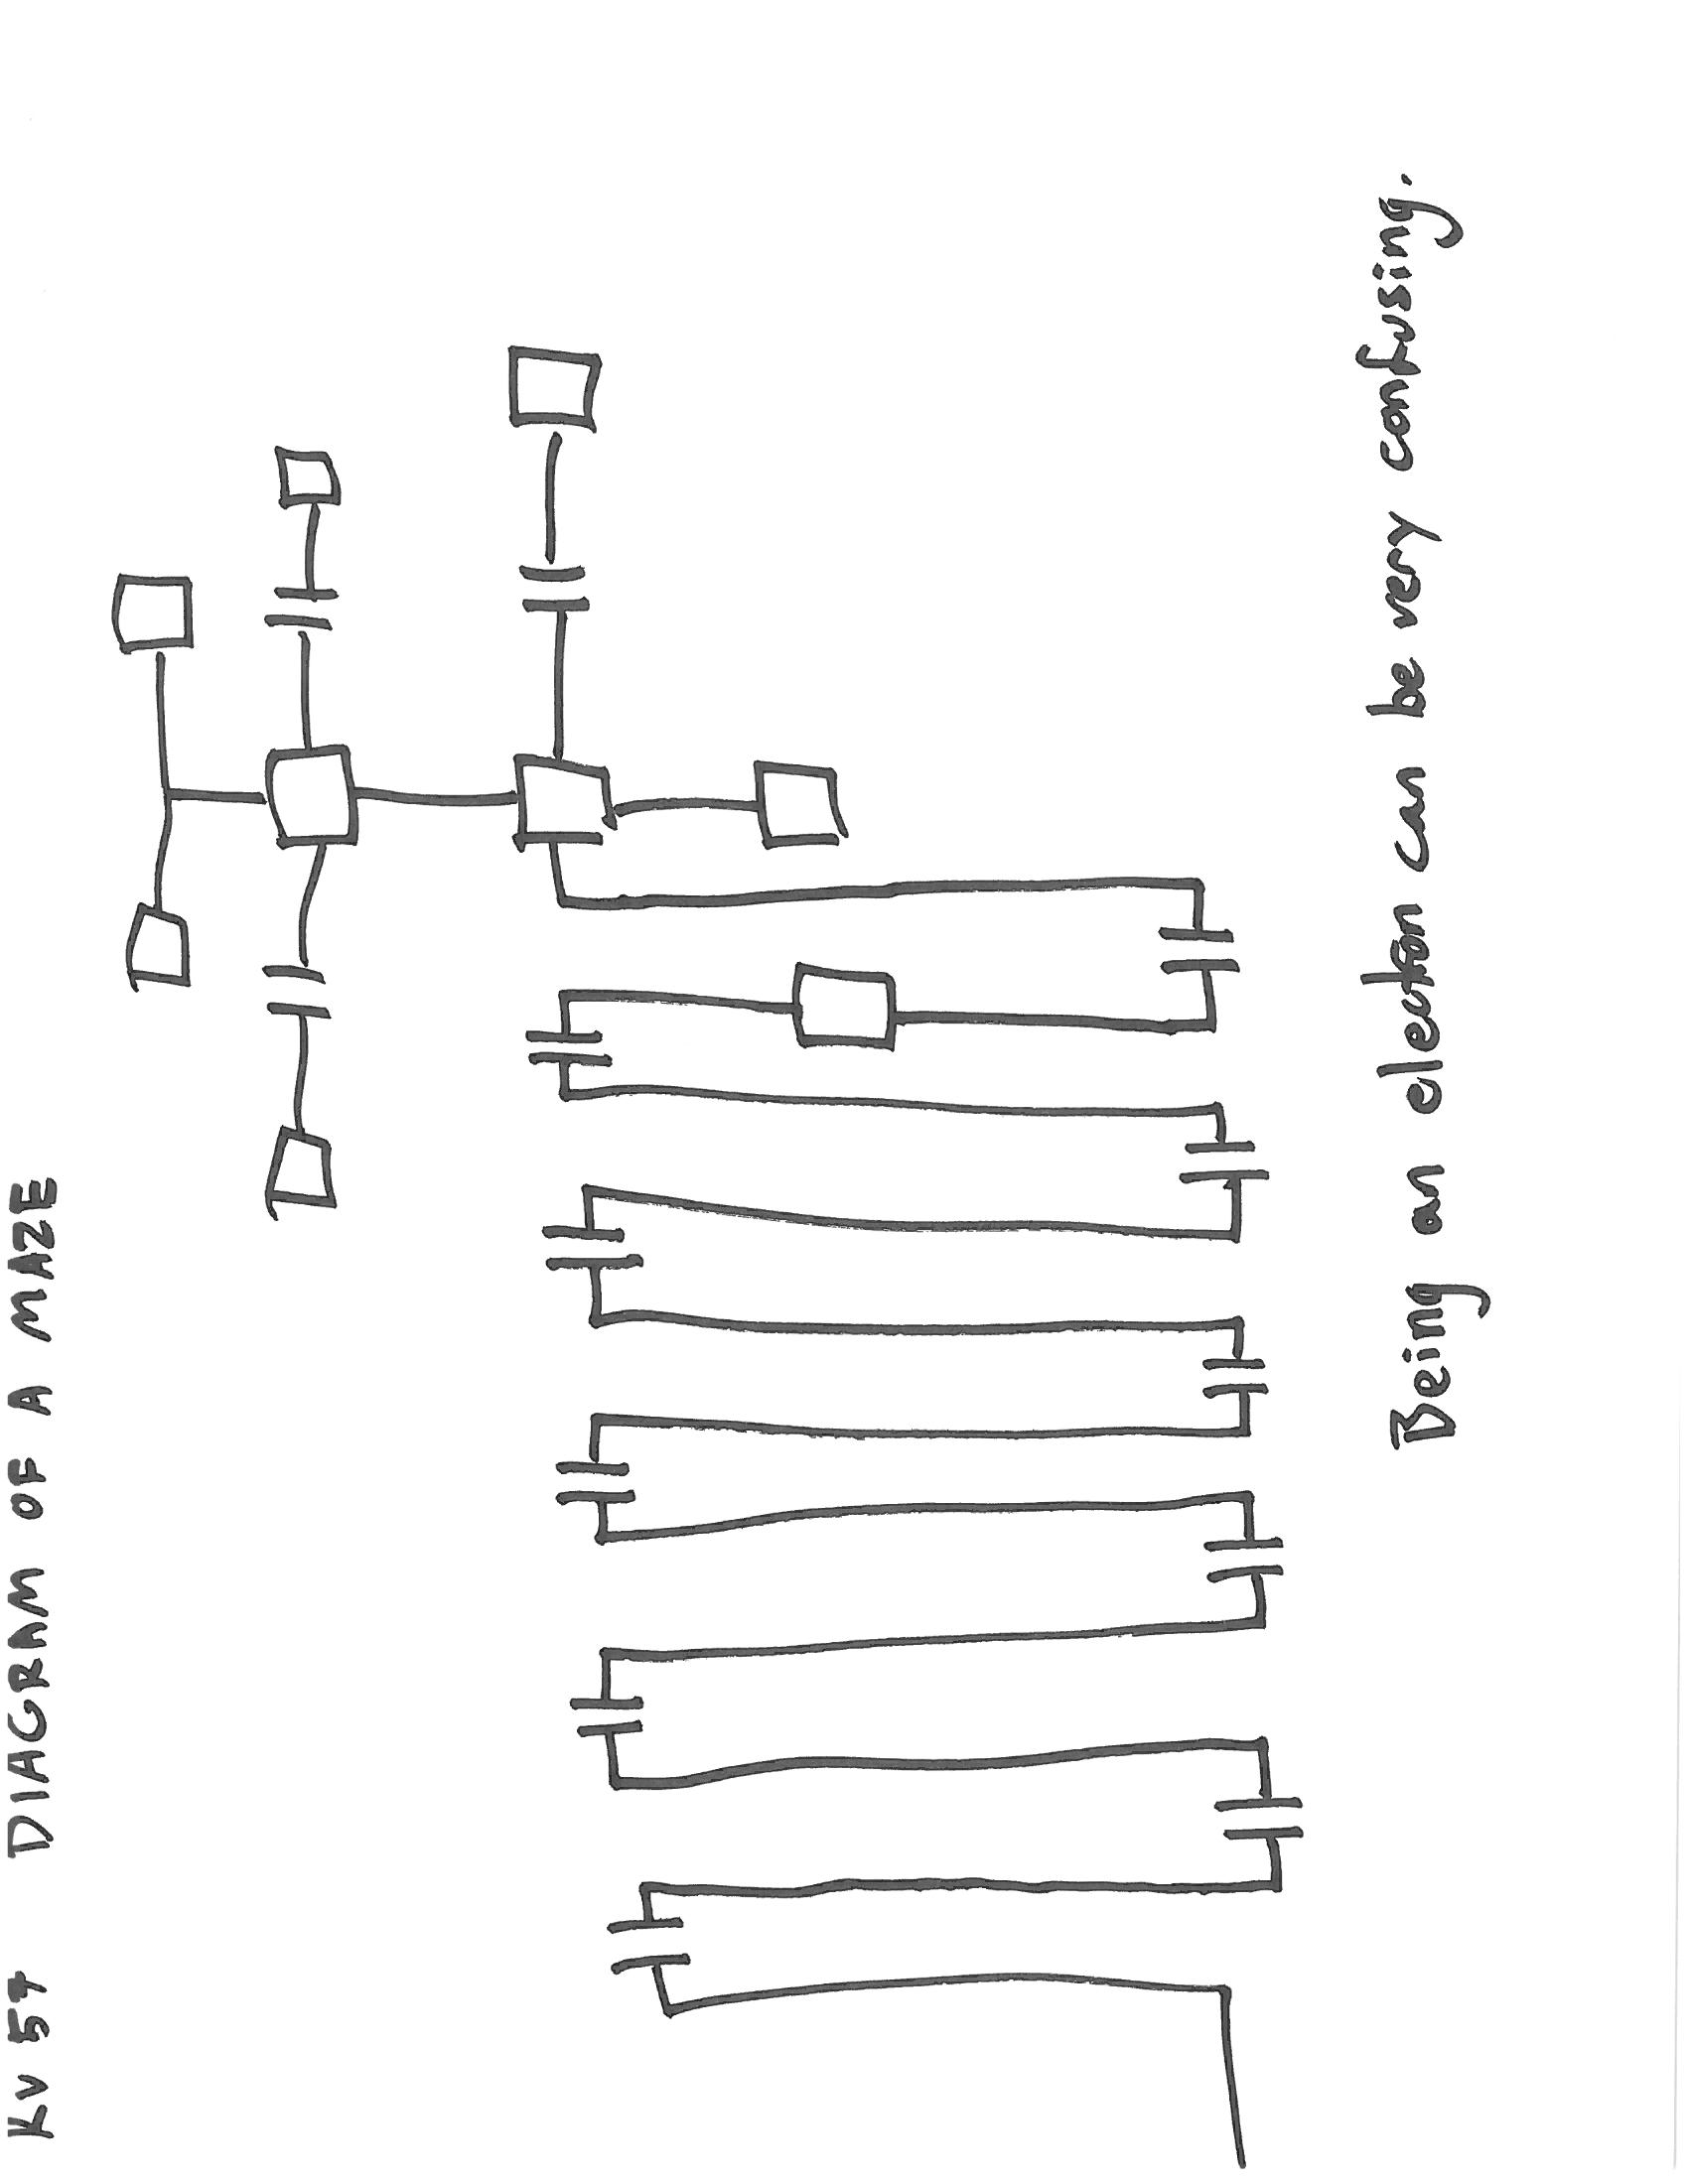 KV 57 DIAGRAM OF A MAZE
Being an electron can be very confusing.